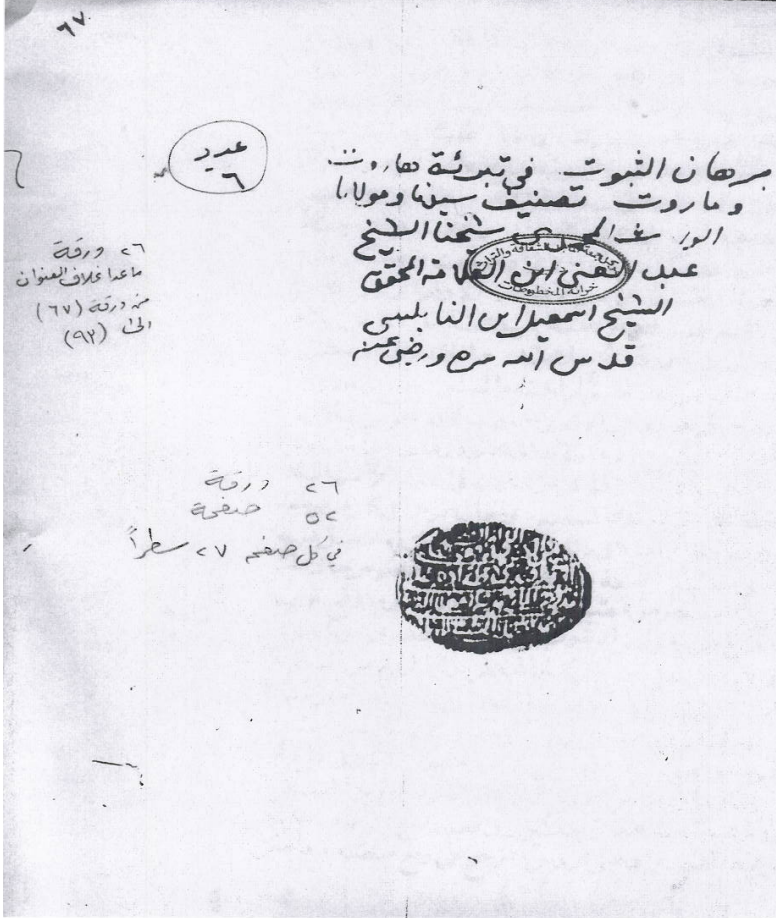 ٦٧
برهان الثبوت في تبرئة هاروت
وماروت تصنيف سيدنا ومولانا
الوارث المحمدي شيخنا الشيخ
عبد الغني ابن العلامة المحقق
الشيخ اسمعيل ابن النابلسي
قدس الله سره ورضي عنه
خزانة المخطوطات
عدد
٦
٢٦ ورقة
ماعدا غلاف العنوان
من ورقة (٦٧)
الى (٩٣)
٢٦ ورقة
٥٢ صفحة
في كل صفحه ٢٧ سطراً